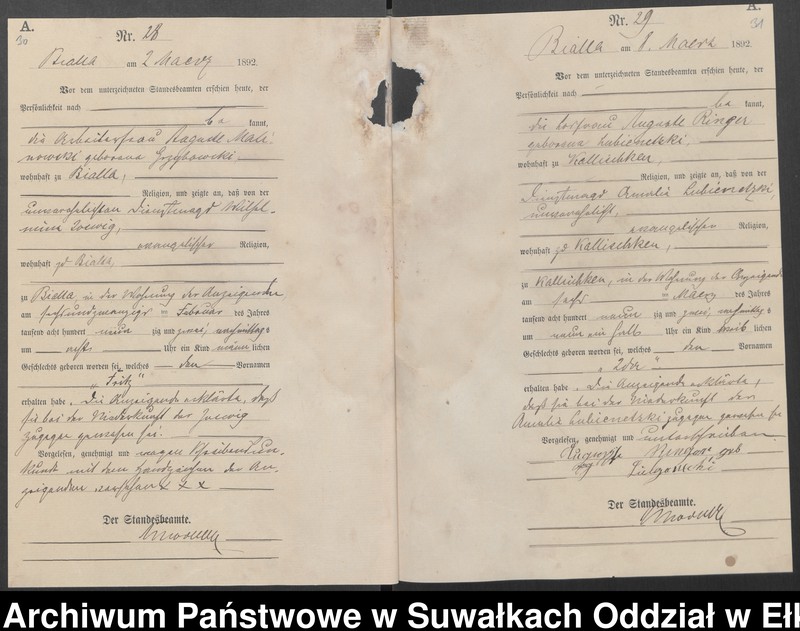 A.
30
Nr. 28
Bialla am 2 Maerz 1892.
Vor dem unterzeichneten Standesbeamten erschien heute, der
Persönlichkeit nach
be kannt,
die Arbeiterfrau Auguste Mali-
nowski geborene Grzybowski
wohnhaft zu Bialla,
Religion, und zeigte an, daß von der
unverehelichten Dienstmagd Wilhel-
mine
evangelischer Religion,
wohnhaft zu Bialla,
zu Bialla in der Wohnung der Anzeigenden
am sechsundzwanzigsten Februar des Jahres
tausend acht hundert neun zig und zwei, vormittags
um Uhr ein Kind männ lichen
Geschlechts geboren worden sei, welches den Vornamen
„Fritz"
erhalten habe. Die Anzeigende erklärte, daß
sie bei der Niederkunft der
zugegen gewesen sei.
Vorgelesen, genehmigt und wegen Schreibensun-
kunde mit dem Handzeichen der An-
zeigenden versehen x x x
Der Standesbeamte.
A.
31
Nr. 29
Bialla am 8. Maerz 1892.
Vor dem unterzeichneten Standesbeamten erschien heute, der
Persönlichkeit nach
be kannt,
die Losfrau Auguste Ringer
geborene Lubienetzki,
wohnhaft zu Kallischken,
Religion, und zeigte an, daß von der
Dienstmagd Amalie Lubienetzki,
unverehelicht,
evangelischer Religion,
wohnhaft zu Kallischken,
zu Kallischken, in der Wohnung der Anzeigenden
am Maerz des Jahres
tausend acht hundert neun zig und zwei, vormittags
um neun ein halb Uhr ein Kind weib lichen
Geschlechts geboren worden sei, welches den Vornamen
„Ida"
erhalten habe. Die Anzeigende erklärte,
daß sie bei der Niederkunft der
Amalie Lubienetzki zugegen gewesen sei
Vorgelesen, genehmigt und unterschrieben.
Der Standesbeamte.
Archiwum Państwowe w Suwałkach Oddział w Ełk